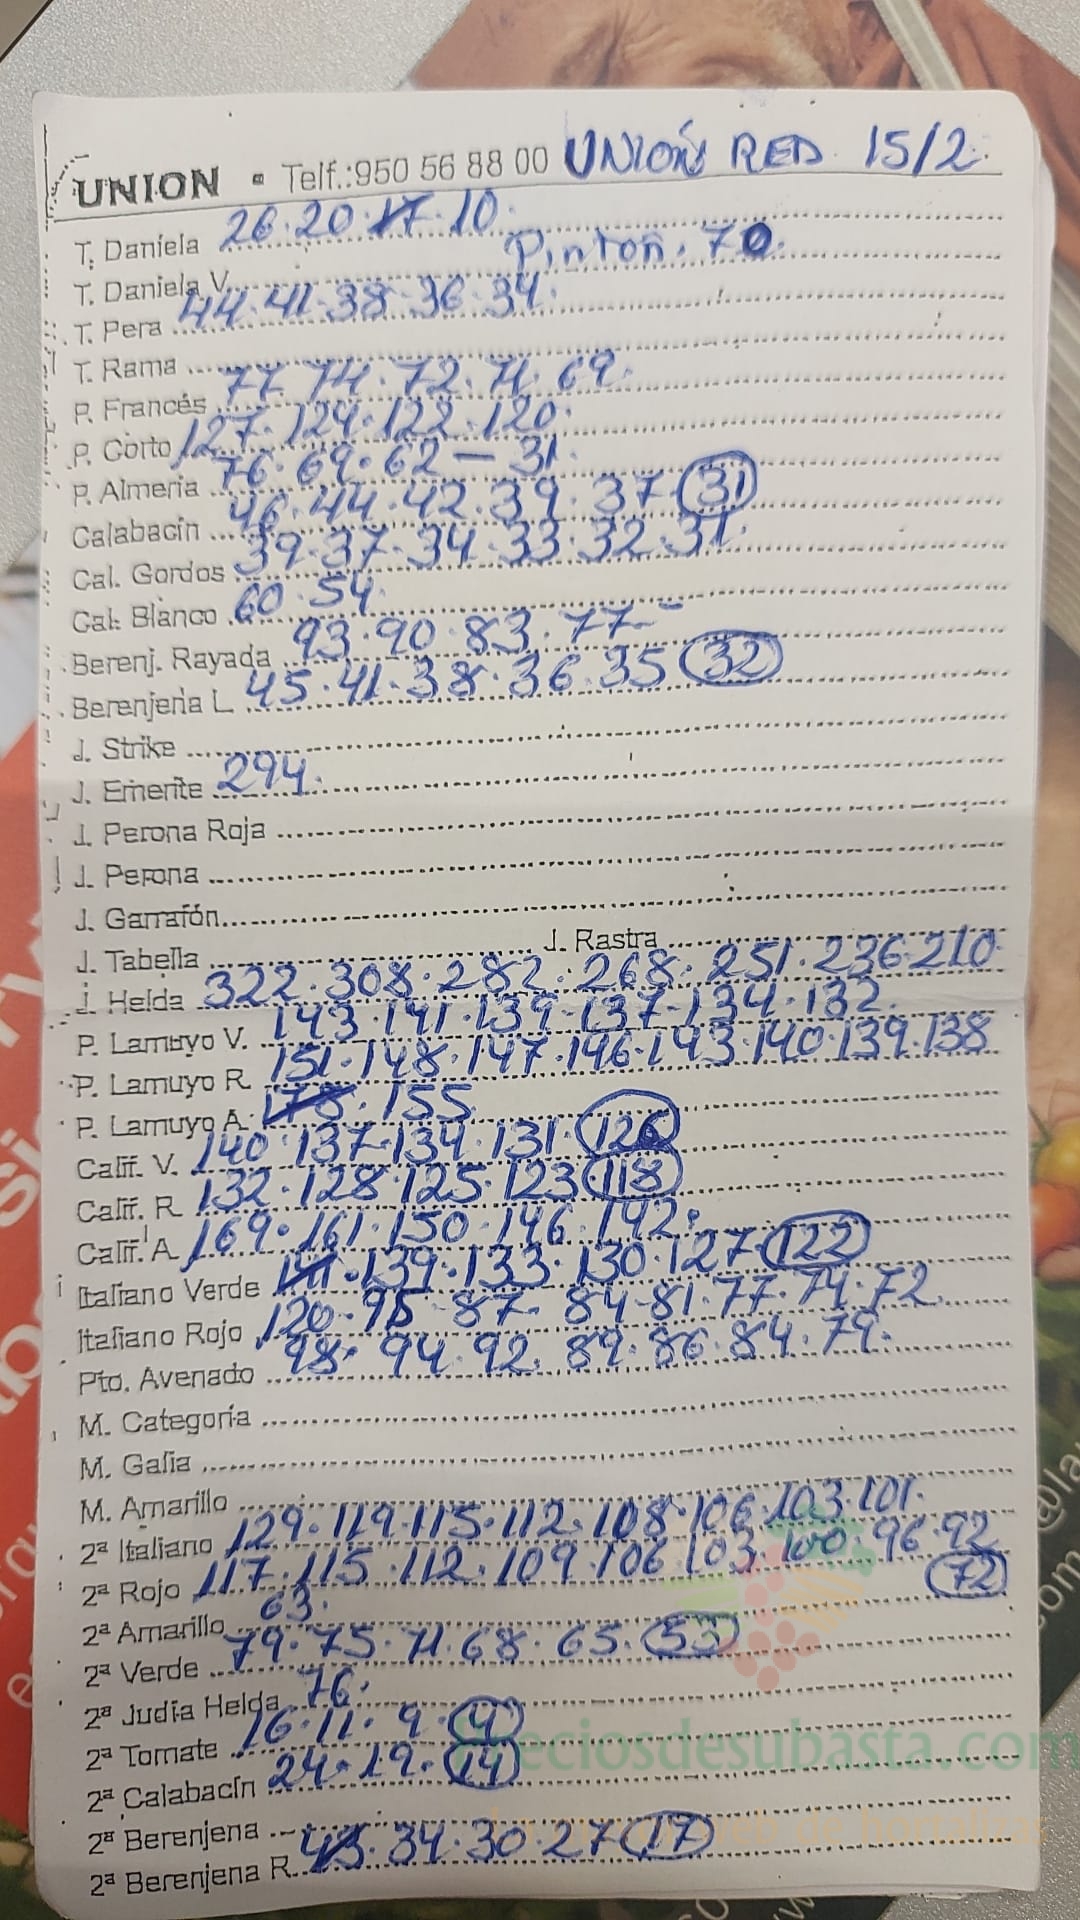 UNION • Telf.:950 56 88 00 UNIÓN RED 15/2.
T. Daniela 26.20.17.10.
T. Daniela V. Pinton. 70.
T. Pera 44.41.38.36.34.
T. Rama
P. Francés 77.74.72.71.69.
P. Corto 127.124.122.120.
P. Almeria 76.69.62 — 31.
Calabacín 46.44.42.39.37 31
Cal. Gordos 39.37.34.33.32.31.
Cal. Blanco 60.54.
Berenj. Rayada 93.90.83.77-
Berenjena L. 45.41.38.36.35 32
J. Strike
J. Emerite 294.
J. Perona Roja
J. Perona
J. Garrafón
J. Tabella J. Rastra
J. Helda 322.308.282.268.251.236.210
P. Lamuyo V. 143.141.139.137.134.132.
P. Lamuyo R. 151.148.147.146.143.140.139.138
P. Lamuyo A. 155.
Calif. V. 140.137.134.131. 126
Calif. R. 132.128.125.123. 118
Calif. A. 169.161.150.146.142.
Italiano Verde 141.139.133.130.127 122
Italiano Rojo 120.95.87.84.81.77.74.72.
Pto. Avenado 98.94.92.89.86.84.79.
M. Categoría
M. Galia
M. Amarillo
2ª Italiano 129.119.115.112.108.106.103.101.
2ª Rojo 117.115.112.109.106.103.100.96.92
72
2ª Amarillo 63.
2ª Verde 79.75.71.68.65. 53
2ª Judía Helda 76.
2ª Tomate 16.11.9. 4
2ª Calabacín 24.19. 14
2ª Berenjena
2ª Berenjena R. 34.30.27 17
preciosdesubasta.com
web de hortalizas